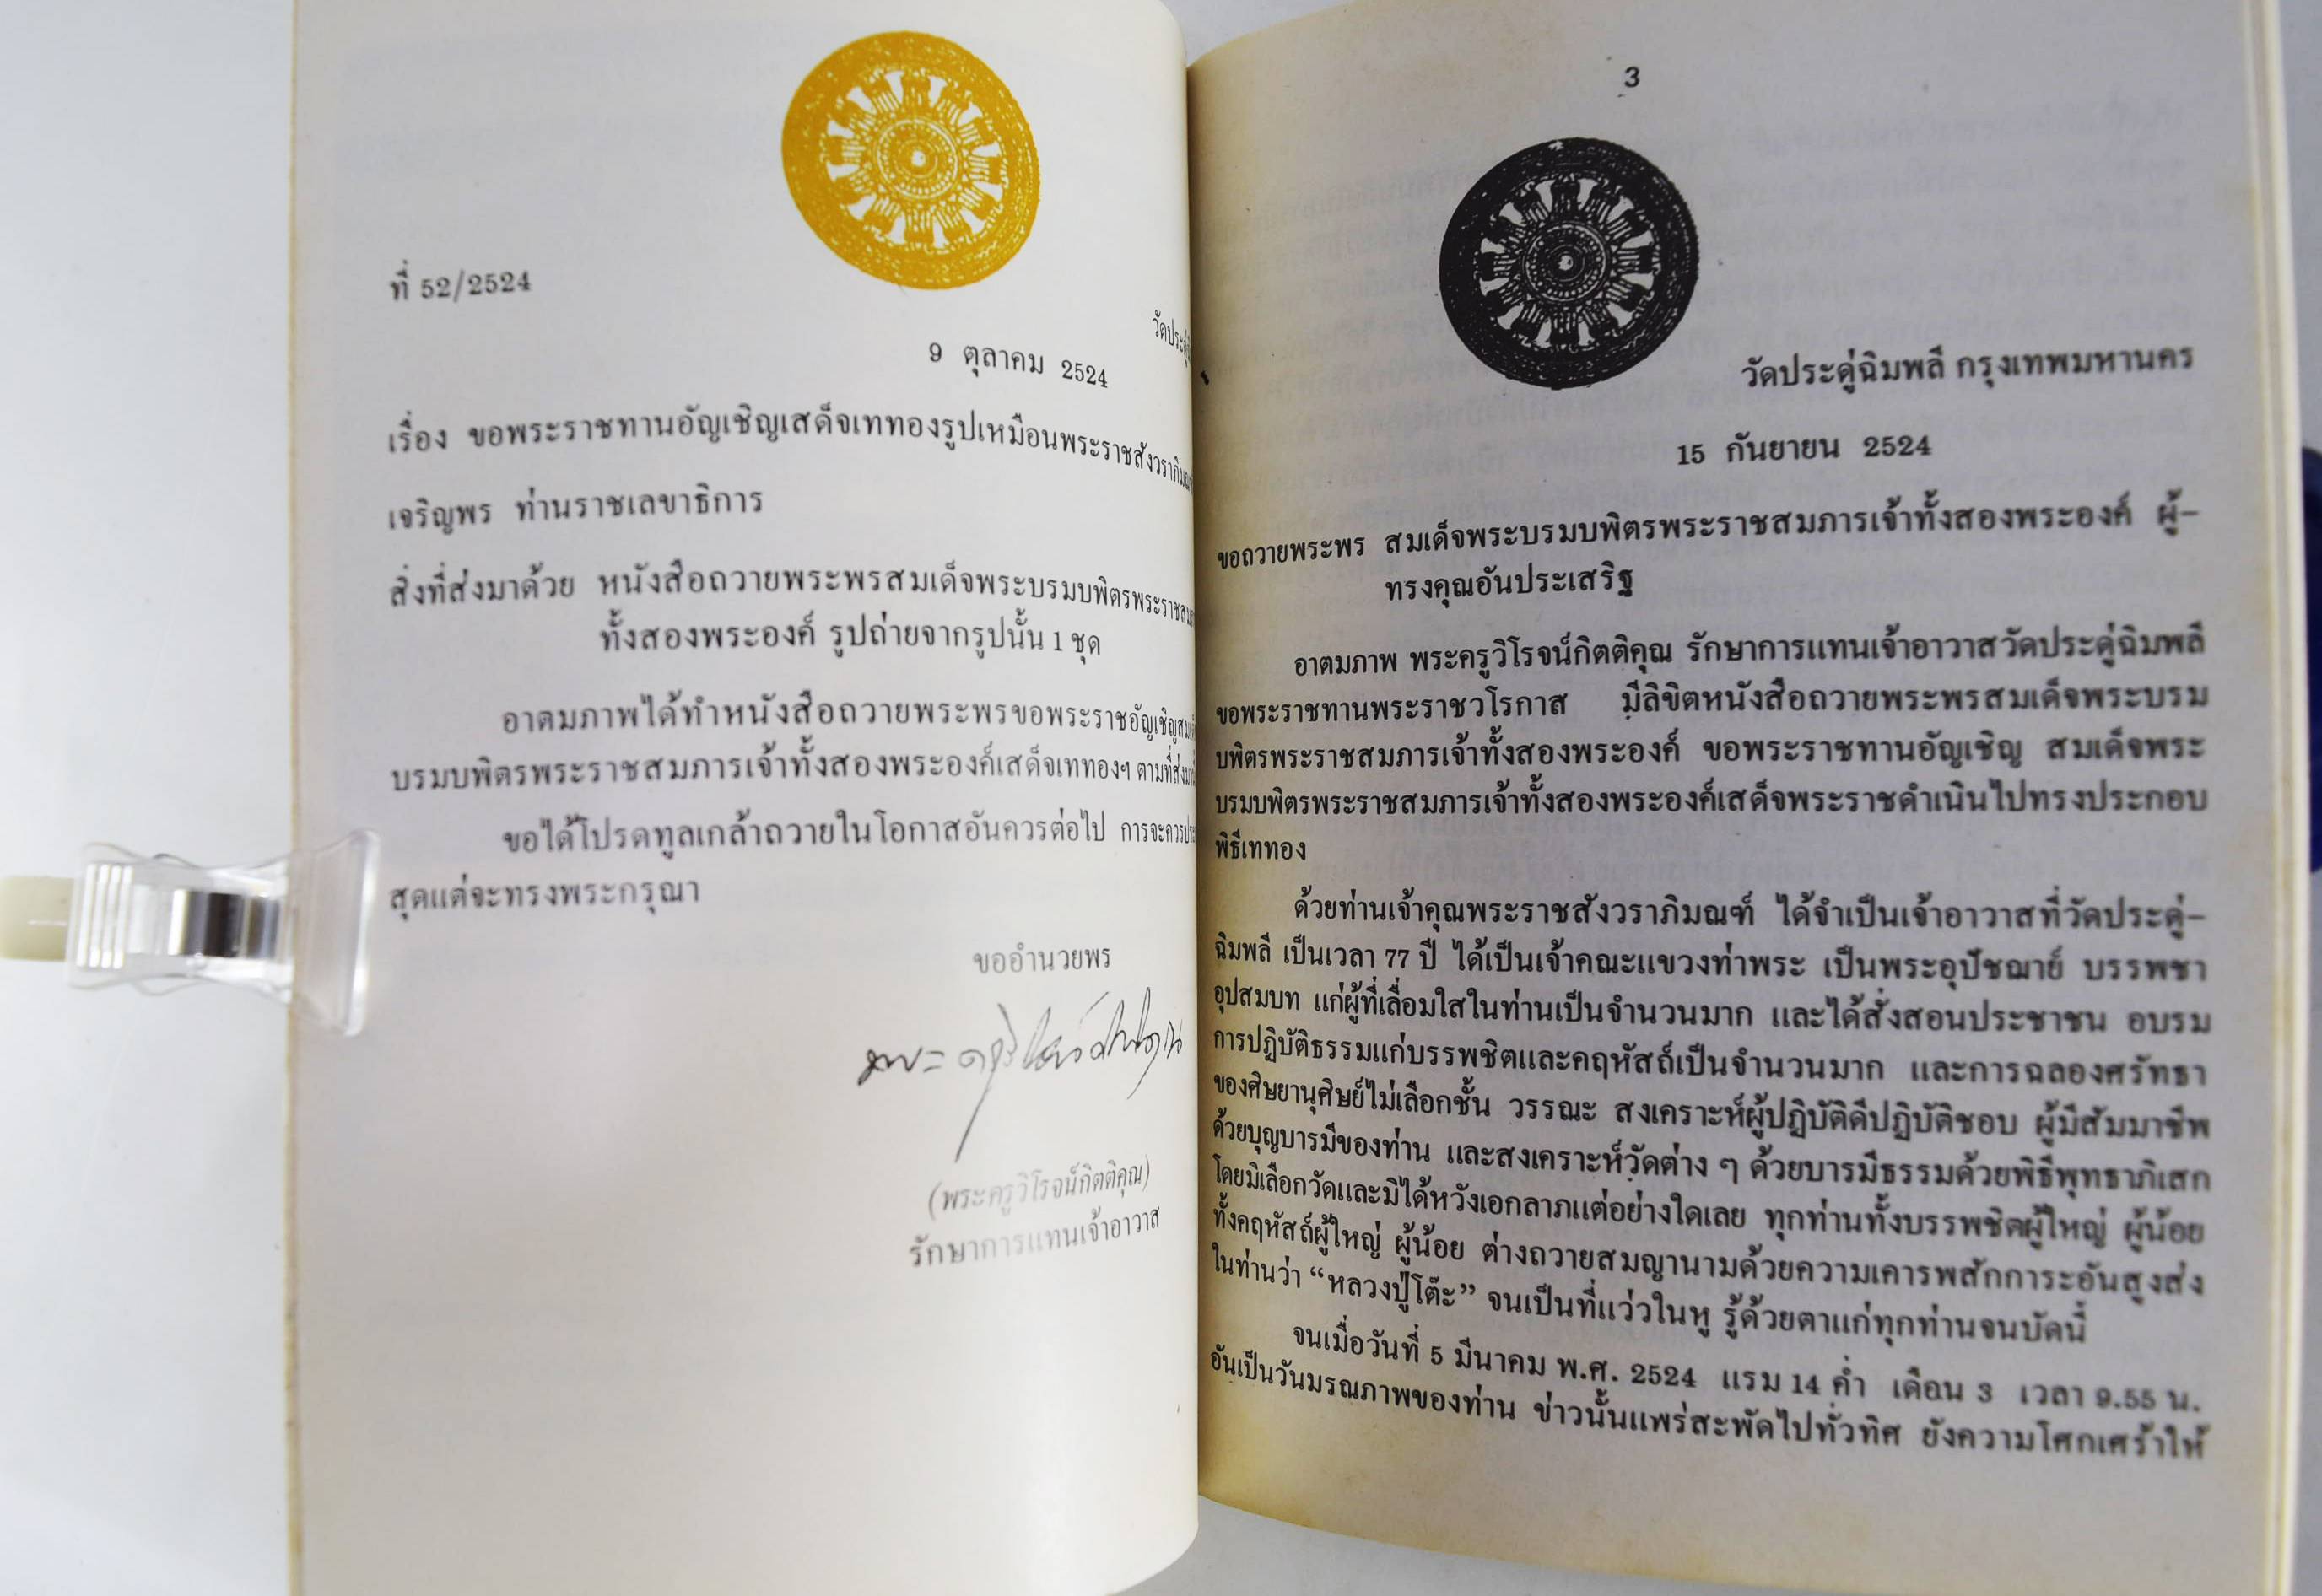 ที่ 52/2524
วัดประดู่
9 ตุลาคม 2524
เรื่อง ขอพระราชทานอัญเชิญเสด็จเททองรูปเหมือนพระราชสังวราภิมณฑ์
เจริญพร ท่านราชเลขาธิการ
สิ่งที่ส่งมาด้วย หนังสือถวายพระพรสมเด็จพระบรมบพิตรพระราชสม
ทั้งสองพระองค์ รูปถ่ายจากรูปนั้น 1 ชุด
อาตมภาพได้ทำหนังสือถวายพระพรขอพระราชอัญเชิญสมเด็
บรมบพิตรพระราชสมภารเจ้าทั้งสองพระองค์เสด็จเททองฯ ตามที่ส่งมา
ขอได้โปรดทูลเกล้าถวายในโอกาสอันควรต่อไป การจะควรประ
สุดแต่จะทรงพระกรุณา
ขออำนวยพร
(พระครูวิโรจน์กิตติคุณ)
รักษาการแทนเจ้าอาวาส
3
วัดประดู่ฉิมพลี กรุงเทพมหานคร
15 กันยายน 2524
ขอถวายพระพร สมเด็จพระบรมบพิตรพระราชสมภารเจ้าทั้งสองพระองค์ ผู้-
ทรงคุณอันประเสริฐ
อาตมภาพ พระครูวิโรจน์กิตติคุณ รักษาการแทนเจ้าอาวาสวัดประดู่ฉิมพลี
ขอพระราชทานพระราชวโรกาส มีลิขิตหนังสือถวายพระพรสมเด็จพระบรม
บพิตรพระราชสมภารเจ้าทั้งสองพระองค์ ขอพระราชทานอัญเชิญ สมเด็จพระ
บรมบพิตรพระราชสมภารเจ้าทั้งสองพระองค์เสด็จพระราชดำเนินไปทรงประกอบ
พิธีเททอง
ด้วยท่านเจ้าคุณพระราชสังวราภิมณฑ์ ได้จำเป็นเจ้าอาวาสที่วัดประดู่-
ฉิมพลี เป็นเวลา 77 ปี ได้เป็นเจ้าคณะแขวงท่าพระ เป็นพระอุปัชฌาย์ บรรพชา
อุปสมบท แก่ผู้ที่เลื่อมใสในท่านเป็นจำนวนมาก และได้สั่งสอนประชาชน อบรม
การปฏิบัติธรรมแก่บรรพชิตและคฤหัสถ์เป็นจำนวนมาก และการฉลองศรัทธา
ของศิษยานุศิษย์ไม่เลือกชั้น วรรณะ สงเคราะห์ผู้ปฏิบัติดีปฏิบัติชอบ ผู้มีสัมมาชีพ
ด้วยบุญบารมีของท่าน และสงเคราะห์วัดต่าง ๆ ด้วยบารมีธรรมด้วยพิธีพุทธาภิเสก
โดยมิเลือกวัดและมิได้หวังเอกลาภแต่อย่างใดเลย ทุกท่านทั้งบรรพชิตผู้ใหญ่ ผู้น้อย
ทั้งคฤหัสถ์ผู้ใหญ่ ผู้น้อย ต่างถวายสมญานามด้วยความเคารพสักการะอันสูงส่ง
ในท่านว่า “หลวงปู่โต๊ะ” จนเป็นที่แว่วในหู รู้ด้วยตาแก่ทุกท่านจนบัดนี้
จนเมื่อวันที่ 5 มีนาคม พ.ศ. 2524 แรม 14 ค่ำ เดือน 3 เวลา 9.55 น.
อันเป็นวันมรณภาพของท่าน ข่าวนั้นแพร่สะพัดไปทั่วทิศ ยังความโศกเศร้าให้